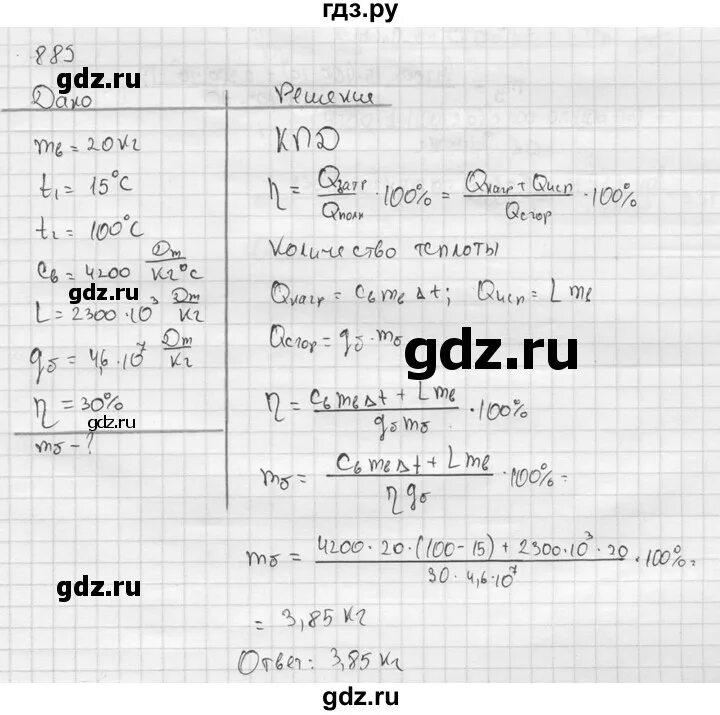 гдз.ру
885
gdz.ru
Дано
mв = 20 кг
t₁ = 15°C
t₂ = 100°C
cв = 4200 Дж/кг°C
gdz.ru
L = 2300·10³ Дж/кг
qб = 4,6·10⁷ Дж/кг
η = 30%
gdz.ru
mб - ?
Решение
КПД
η = Qзатр/Qполн · 100% = (Qнагр + Qисп)/Qсгор · 100%
Количество теплоты
Qнагр = cв mв Δt; Qисп = L mв
Qсгор = qб · mб
gdz.ru
η = (cв mв Δt + L mв)/(qб mб) · 100%
mб = (cв mв Δt + L mв)/(η qб) · 100% =
gdz.ru
mб = (4200 · 20 · (100 - 15) + 2300·10³ · 20)/(30 · 4,6·10⁷) · 100% =
= 3,85 кг
Ответ: 3,85 кг
gdz.ru